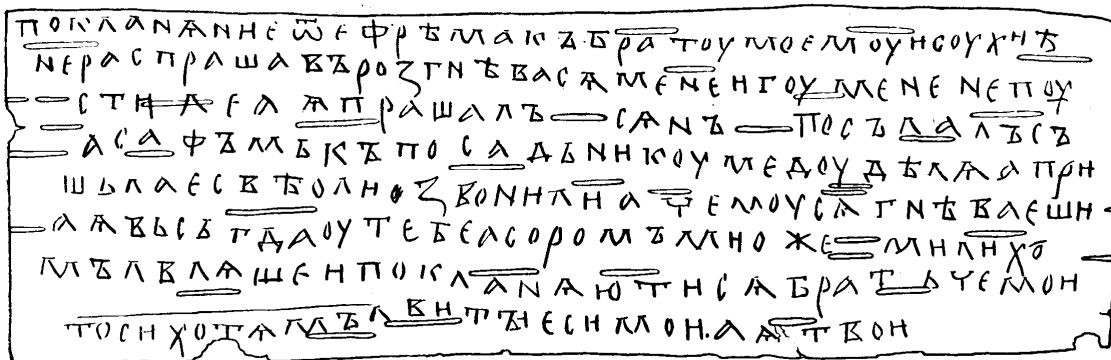 покланѧниеѿефрѣмакъбратоумоемоуисоухиѣ
нерасправшавърозгнѣвасѧменеигоуменепоу
стилеаѧпрашалъ — сѧнъ — посълалъсъ
асафъмькъпосадьникоумедоудѣлѧапри
шьлаесвѣолизвонилиачемоусѧгнѣваеши
аѧвьсьгдаоутебеасоромъмиожемилихо
мълвлѧшеипокланѧютисѧбратьчемои
тосихотѧмълвитъіесимои·аѧтвои